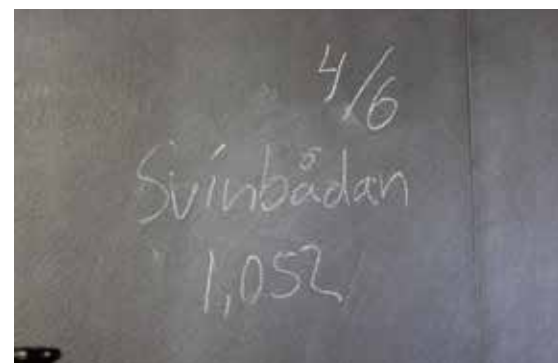 4/6
Svinbådan
1,052